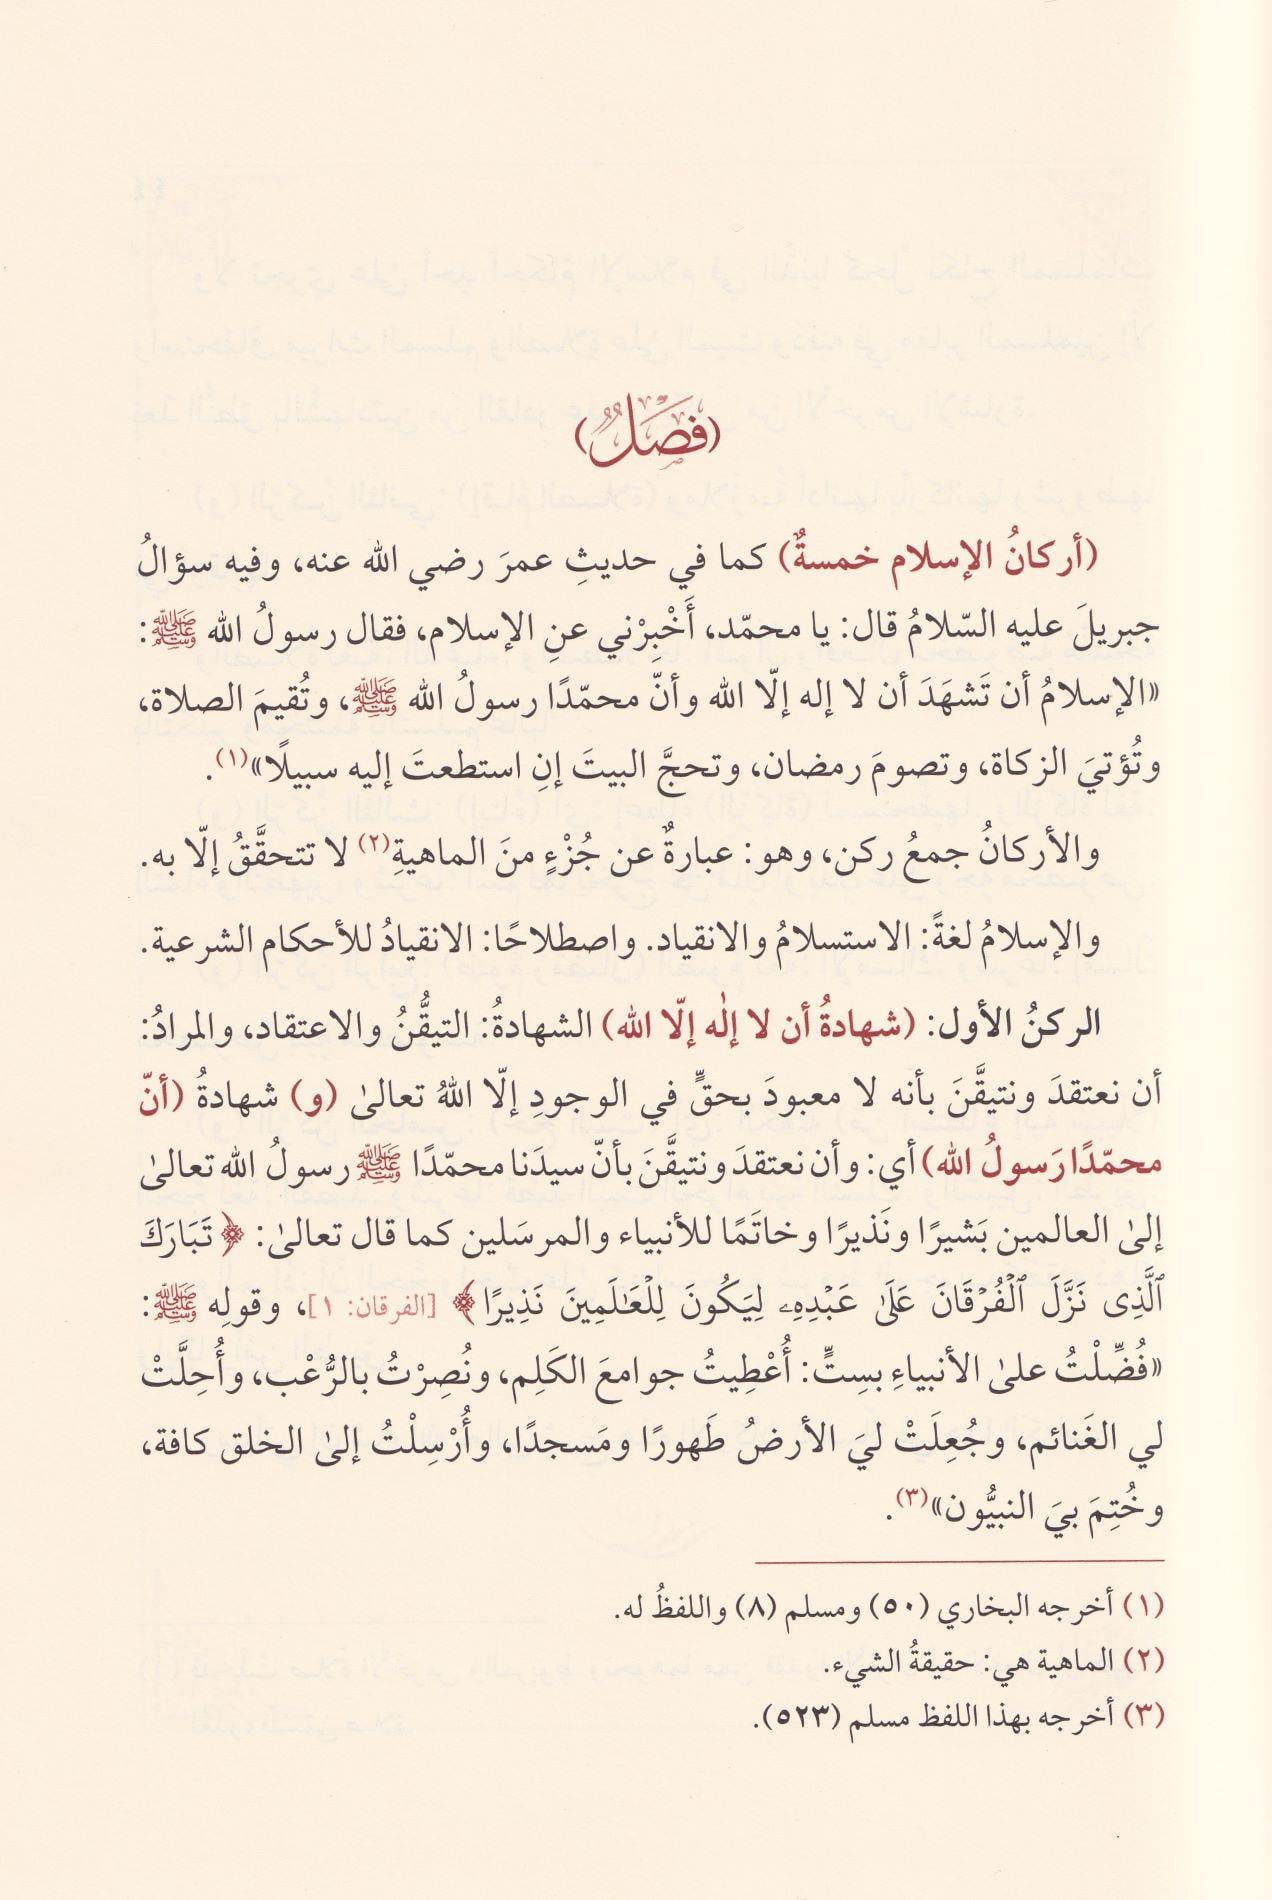 (فَصْلٌ)
(أركانُ الإسلام خمسةٌ) كما في حديثِ عمرَ رضي الله عنه، وفيه سؤالُ
جبريلَ عليه السّلامُ قال: يا محمّد، أَخْبِرْني عنِ الإسلام، فقال رسولُ الله ﷺ:
«الإسلامُ أن تَشهَدَ أن لا إله إلّا الله وأنّ محمّدًا رسولُ الله ﷺ، وتُقيمَ الصلاة،
وتُؤتيَ الزكاة، وتصومَ رمضان، وتحجَّ البيتَ إنِ استطعتَ إليه سبيلًا»(١).
والأركانُ جمعُ ركن، وهو: عبارةٌ عن جُزْءٍ منَ الماهيةِ(٢) لا تتحقَّقُ إلّا به.
والإسلامُ لغةً: الاستسلامُ والانقياد. واصطلاحًا: الانقيادُ للأحكام الشرعية.
الركنُ الأول: (شهادةُ أن لا إلٰه إلّا الله) الشهادةُ: التيقُّنُ والاعتقاد، والمرادُ:
أن نعتقدَ ونتيقَّنَ بأنه لا معبودَ بحقٍّ في الوجودِ إلّا اللهُ تعالىٰ (و) شهادةُ (أنّ
محمّدًا رَسولُ الله) أي: وأن نعتقدَ ونتيقَّنَ بأنّ سيدَنا محمّدًا ﷺ رسولُ الله تعالىٰ
إلىٰ العالمين بَشيرًا ونَذيرًا وخاتَمًا للأنبياء والمرسَلين كما قال تعالىٰ: ﴿تَبَارَكَ
ٱلَّذِى نَزَّلَ ٱلْفُرْقَانَ عَلَىٰ عَبْدِهِۦ لِيَكُونَ لِلْعَٰلَمِينَ نَذِيرًا﴾ [الفرقان: ١]، وقولِه ﷺ:
«فُضِّلْتُ علىٰ الأنبياءِ بسِتٍّ: أُعْطِيتُ جوامعَ الكَلِم، ونُصِرْتُ بالرُّعْب، وأُحِلَّتْ
لي الغَنائم، وجُعِلَتْ ليَ الأرضُ طَهورًا ومَسجدًا، وأُرْسِلْتُ إلىٰ الخلق كافة،
وخُتِمَ بيَ النبيُّون»(٣).
(١) أخرجه البخاري (٥٠) ومسلم (٨) واللفظُ له.
(٢) الماهية هي: حقيقةُ الشيء.
(٣) أخرجه بهذا اللفظ مسلم (٥٢٣).